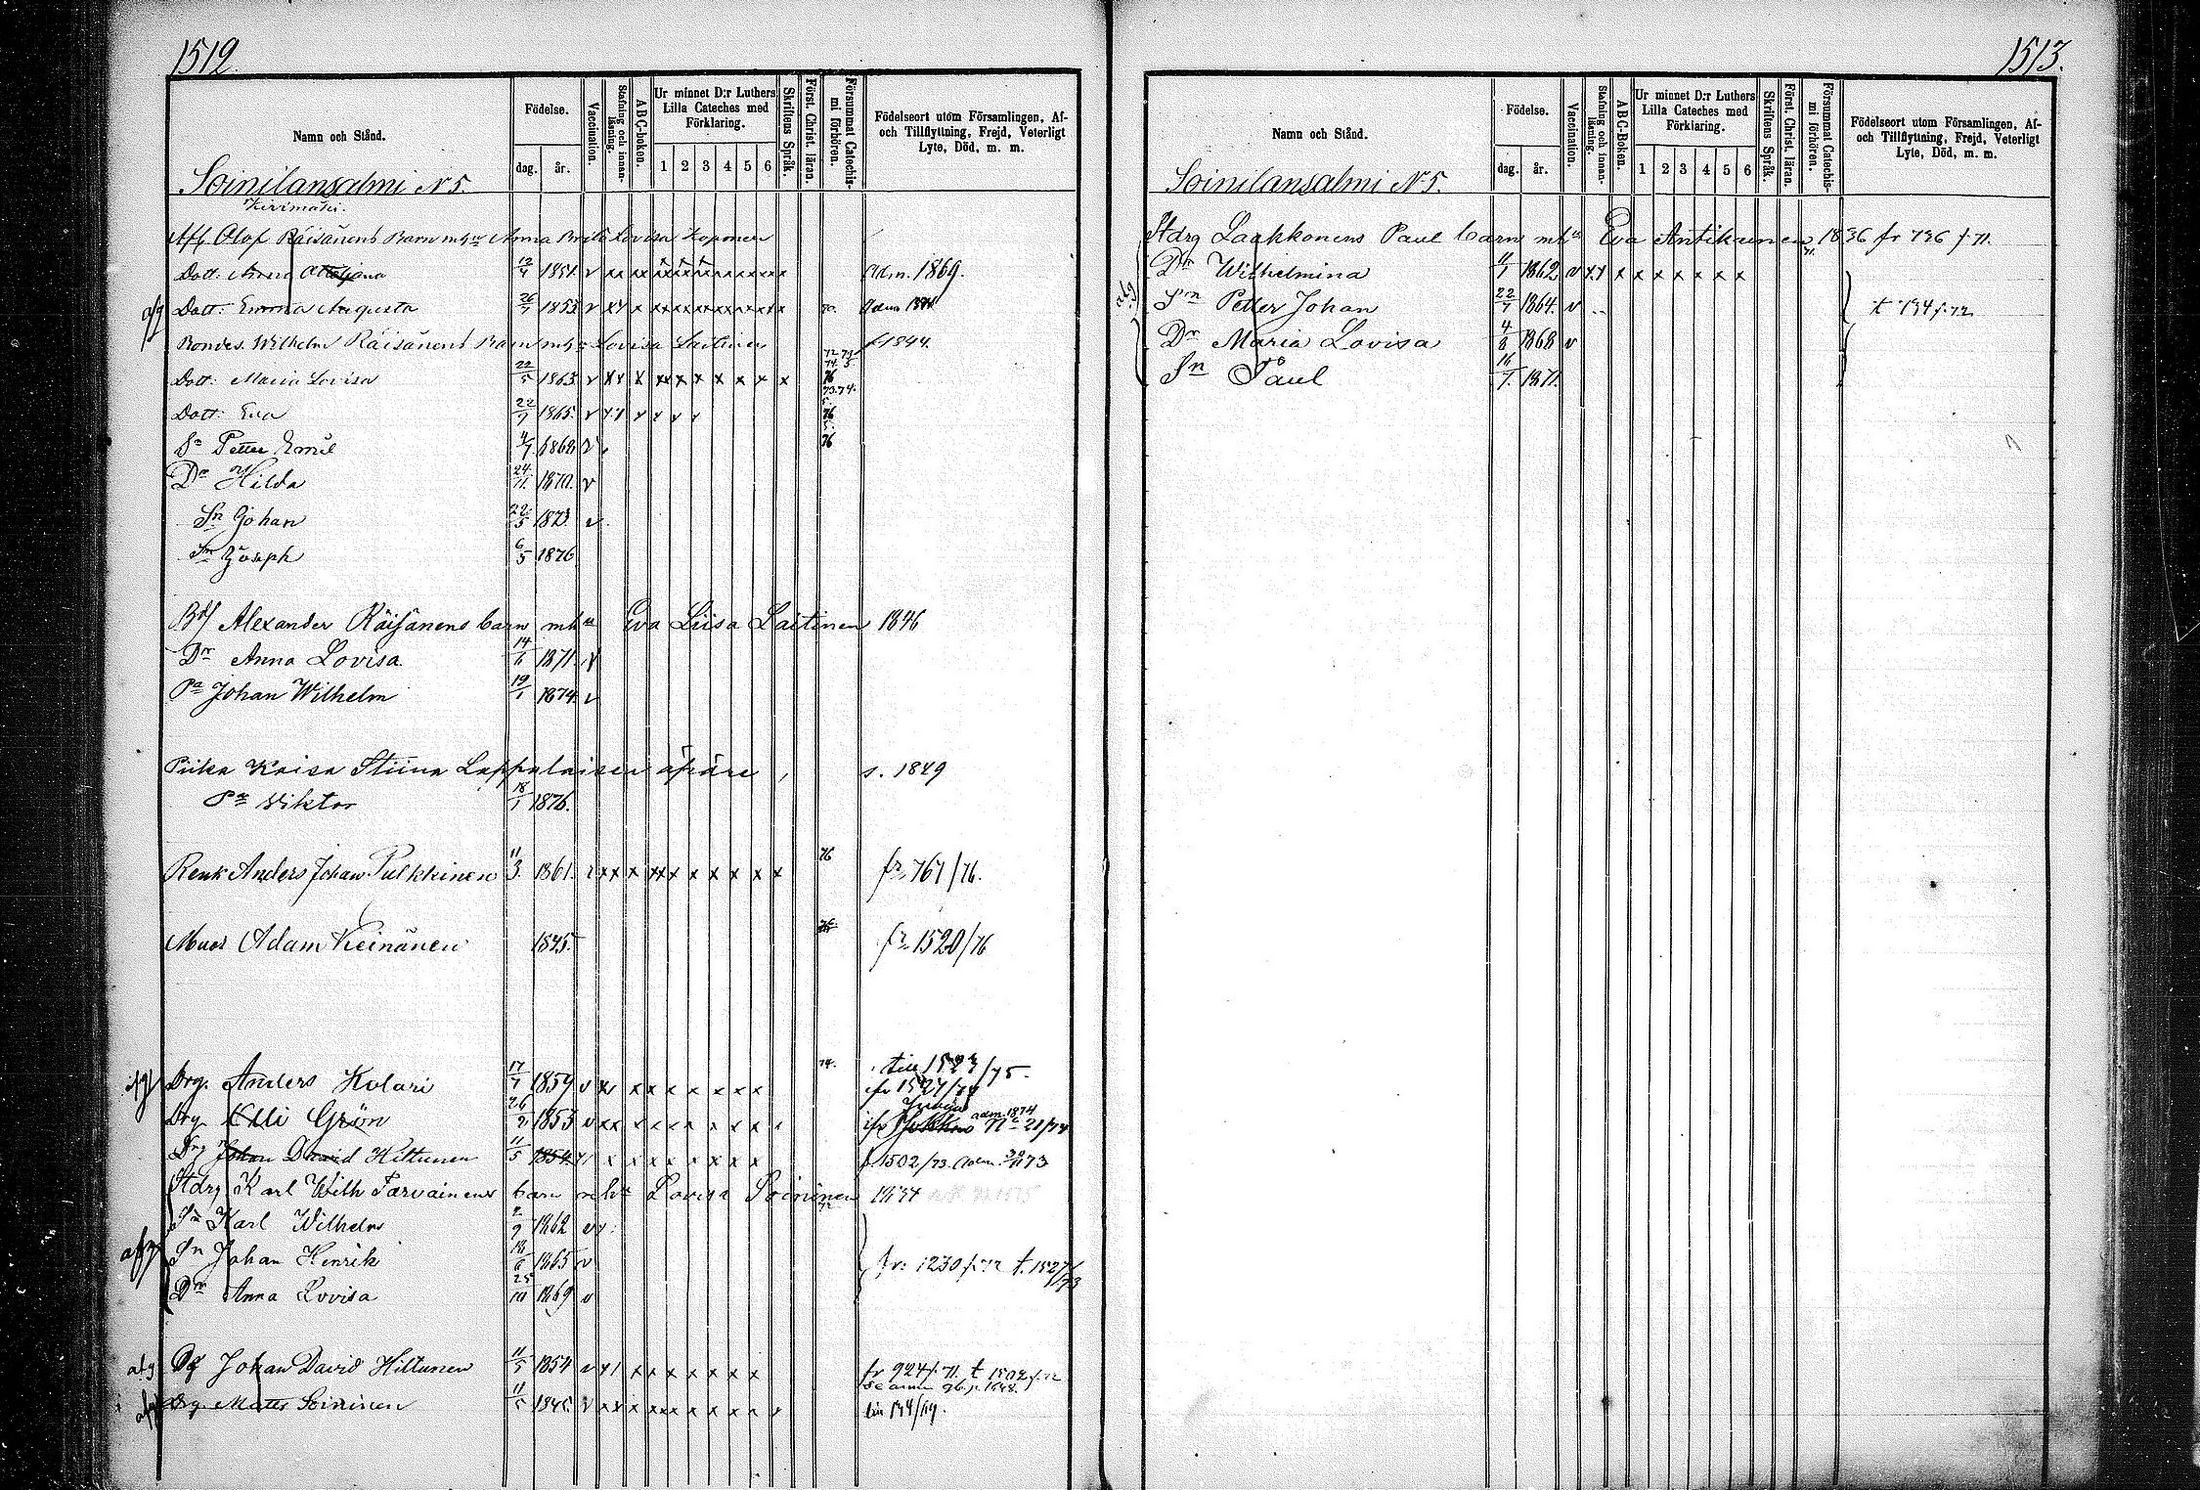 1512.
Namn och Stånd.
Födelse.
dag. år.
Vaccination.
Stafning och innanläsning.
ABC-boken.
Ur minnet D:r Luthers Lilla Cateches med Förklaring.
1 2 3 4 5 6
Skriftens Språk.
Först. Christ. läran.
Försummat Catechismi förhören.
Födelseort utom Församlingen, Af- och Tillflyttning, Frejd, Veterligt Lyte, Död, m. m.
Soinilansalmi N 5.
Kirimäki.
Afl. Olof Räisänens Barn mh Anna Brita Lovisa Koponen
Dott: Anna 12/4 1851. v adm. 1869.
afg Dott: Emma Augusta 26/7 1853 v 70.
Bondes. Wilhelm Räisänens Barn mh Lovisa Laitinen f 1844.
Dott: Maria Lovisa 22/5 1863 v 72 73 74. 5. 76
Dott: Eva 22/7 1865 v 73.74. 5. 76
Sn Petter Emil 4/7 1868 v 5. 76
Dr Hilda 24/11 1870. v
Sn Johan 22/5 1873 v
Sn Joseph 6/5 1876
Alexander Räisänens barn mha Eva Liisa Laitinen 1846
Dr Anna Lovisa 14/6 1871. v
Pa Johan Wilhelm 19/1 1874. v
Piika Kaisa Stiina Lappalaisen äpäre s. 1849
Pa Viktor 18/1 1876.
Renk Anders Johan Pulkkinen 11/3. 1861. v 76 fr 767/76.
Adam Keinänen 1845. fr 1520/76
afg Drg. Anders Kolari 17/7 1859 v 74. till 1523/75.
fr 1527/74
Drg Elli Grön 26/2 1853 v fr adm. 1874 No 21/74
Drg Johan David Hiltunen 11/5 1854 f 1502/73. 73
Stdrg Karl Wilh Tarvainens barn mha Lovisa Soininen 1834
Sn Karl Wilhelm 2/9 1862 v
afg Sn Johan Henrik 18/6 1865 v fr. 1230 f. 72 t. 1527/73
Dr Anna Lovisa 25/10 1869 v
afg Dg Johan David Hiltunen 11/5 1854 v fr 924 f. 71. t 1502 f. 72
afg Drg. Matts Soininen 11/5 1845. v
1513.
Namn och Stånd.
Födelse.
dag. år.
Vaccination.
Stafning och innanläsning.
ABC-Boken.
Ur minnet D:r Luthers Lilla Cateches med Förklaring.
1 2 3 4 5 6
Skriftens Språk.
Först. Christ. läran.
Försummat Catechismi förhören.
Födelseort utom Församlingen, Af- och Tillflyttning, Frejd, Veterligt Lyte, Död, m. m.
Soinilansalmi N 5.
Stdrg Laakkonens Paul barn mha Eva Antikainen 1836 fr 736 f. 71.
Dr Wilhelmina 11/1 1862. v 71.
afg Sn Petter Johan 22/7 1864. v t 734 f. 72
Dr Maria Lovisa 4/8 1868 v
Sn Paul 16/7 1871.